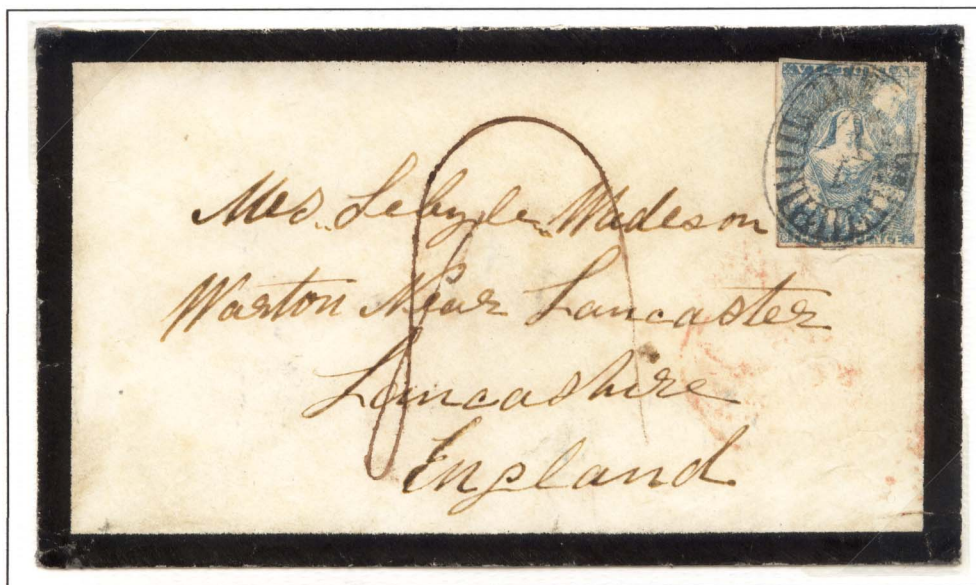 Mrs. Sebyle Wadeson
Warton Near Lancaster
Lancashire
England